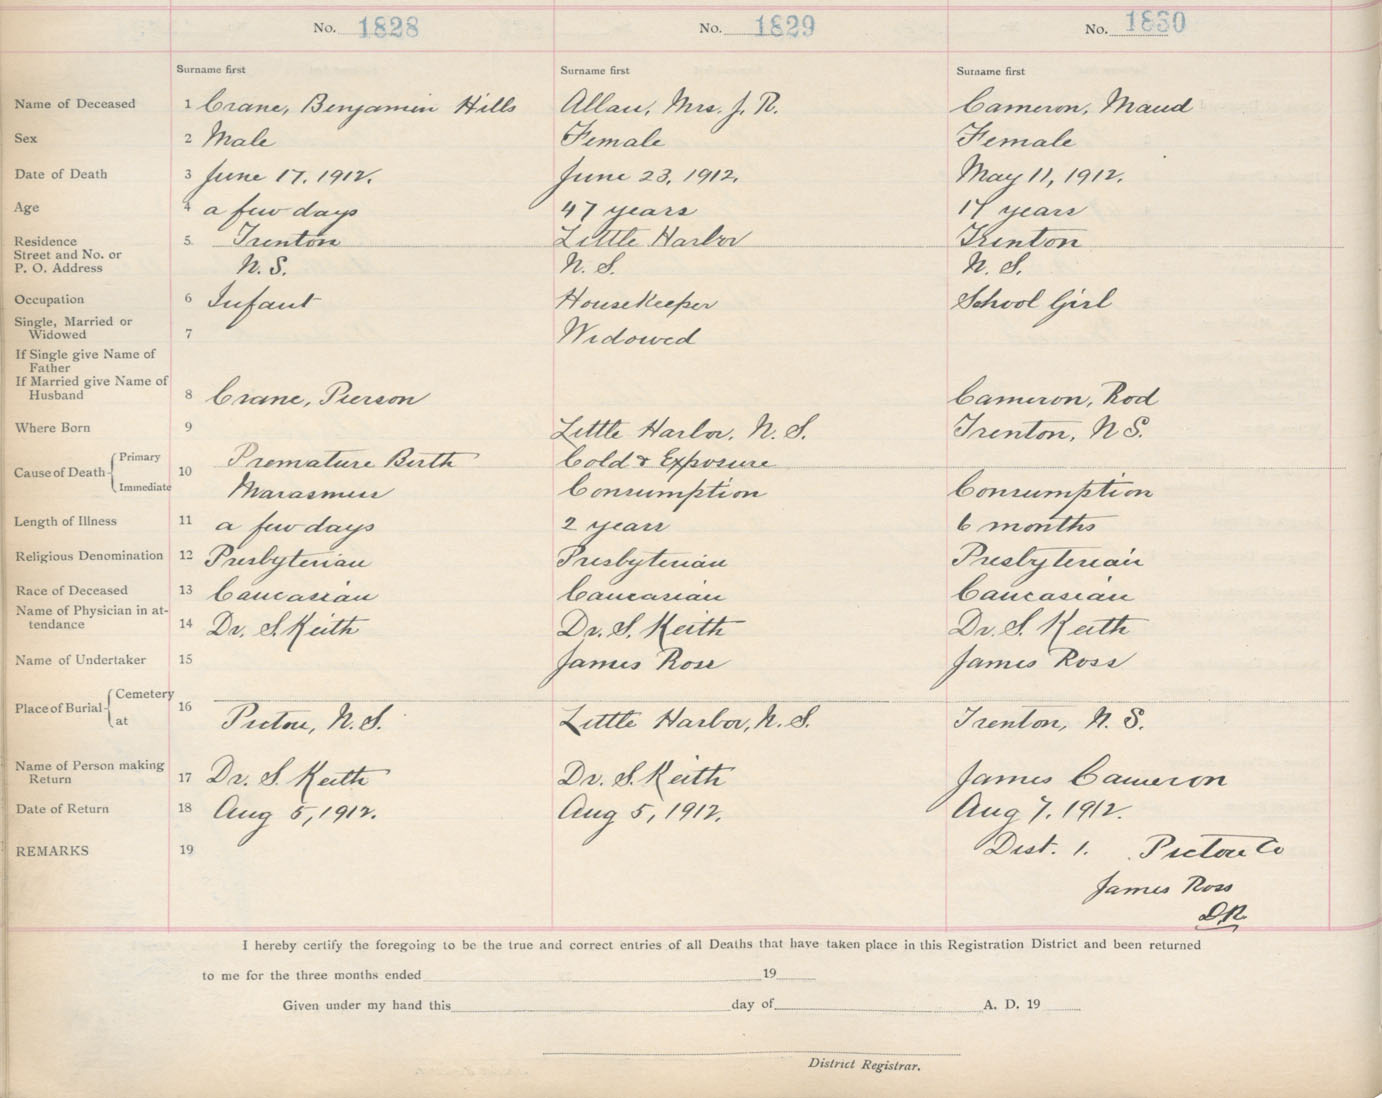 No. 1828 No. 1829 No. 1830
Surname first Surname first Surname first
Name of Deceased 1 Crane, Benjamin Hills Allan, Mrs. J. R. Cameron, Maud
Sex 2 Male Female Female
Date of Death 3 June 17, 1912. June 23, 1912. May 11, 1912.
Age 4 a few days 47 years 17 years
Residence 5. Trenton Little Harbor Trenton
Street and No. or
P. O. Address N. S. N. S. N. S.
Occupation 6 Infant Housekeeper School Girl
Single, Married or
Widowed 7 Widowed
If Single give Name of
Father
If Married give Name of
Husband 8 Crane, Pierson Cameron, Rod
Where Born 9 Little Harbor, N. S. Trenton, N S.
Cause of Death Primary 10 Premature Birth Cold & Exposure
Immediate Marasmus Consumption Consumption
Length of Illness 11 a few days 2 years 6 months
Religious Denomination 12 Presbyterian Presbyterian Presbyterian
Race of Deceased 13 Caucasian Caucasian Caucasian
Name of Physician in at-
tendance 14 Dr. S. Keith Dr. S. Keith Dr. S. Keith
Name of Undertaker 15 James Ross James Ross
Place of Burial Cemetery 16
at Pictou, N. S. Little Harbor, N. S. Trenton, N. S.
Name of Person making
Return 17 Dr. S. Keith Dr. S. Keith James Cameron
Date of Return 18 Aug 5, 1912. Aug 5, 1912. Aug 7, 1912.
REMARKS 19 Dist. 1. Pictou Co
James Ross
D.R.
I hereby certify the foregoing to be the true and correct entries of all Deaths that have taken place in this Registration District and been returned
to me for the three months ended 19
Given under my hand this day of A. D. 19
District Registrar.